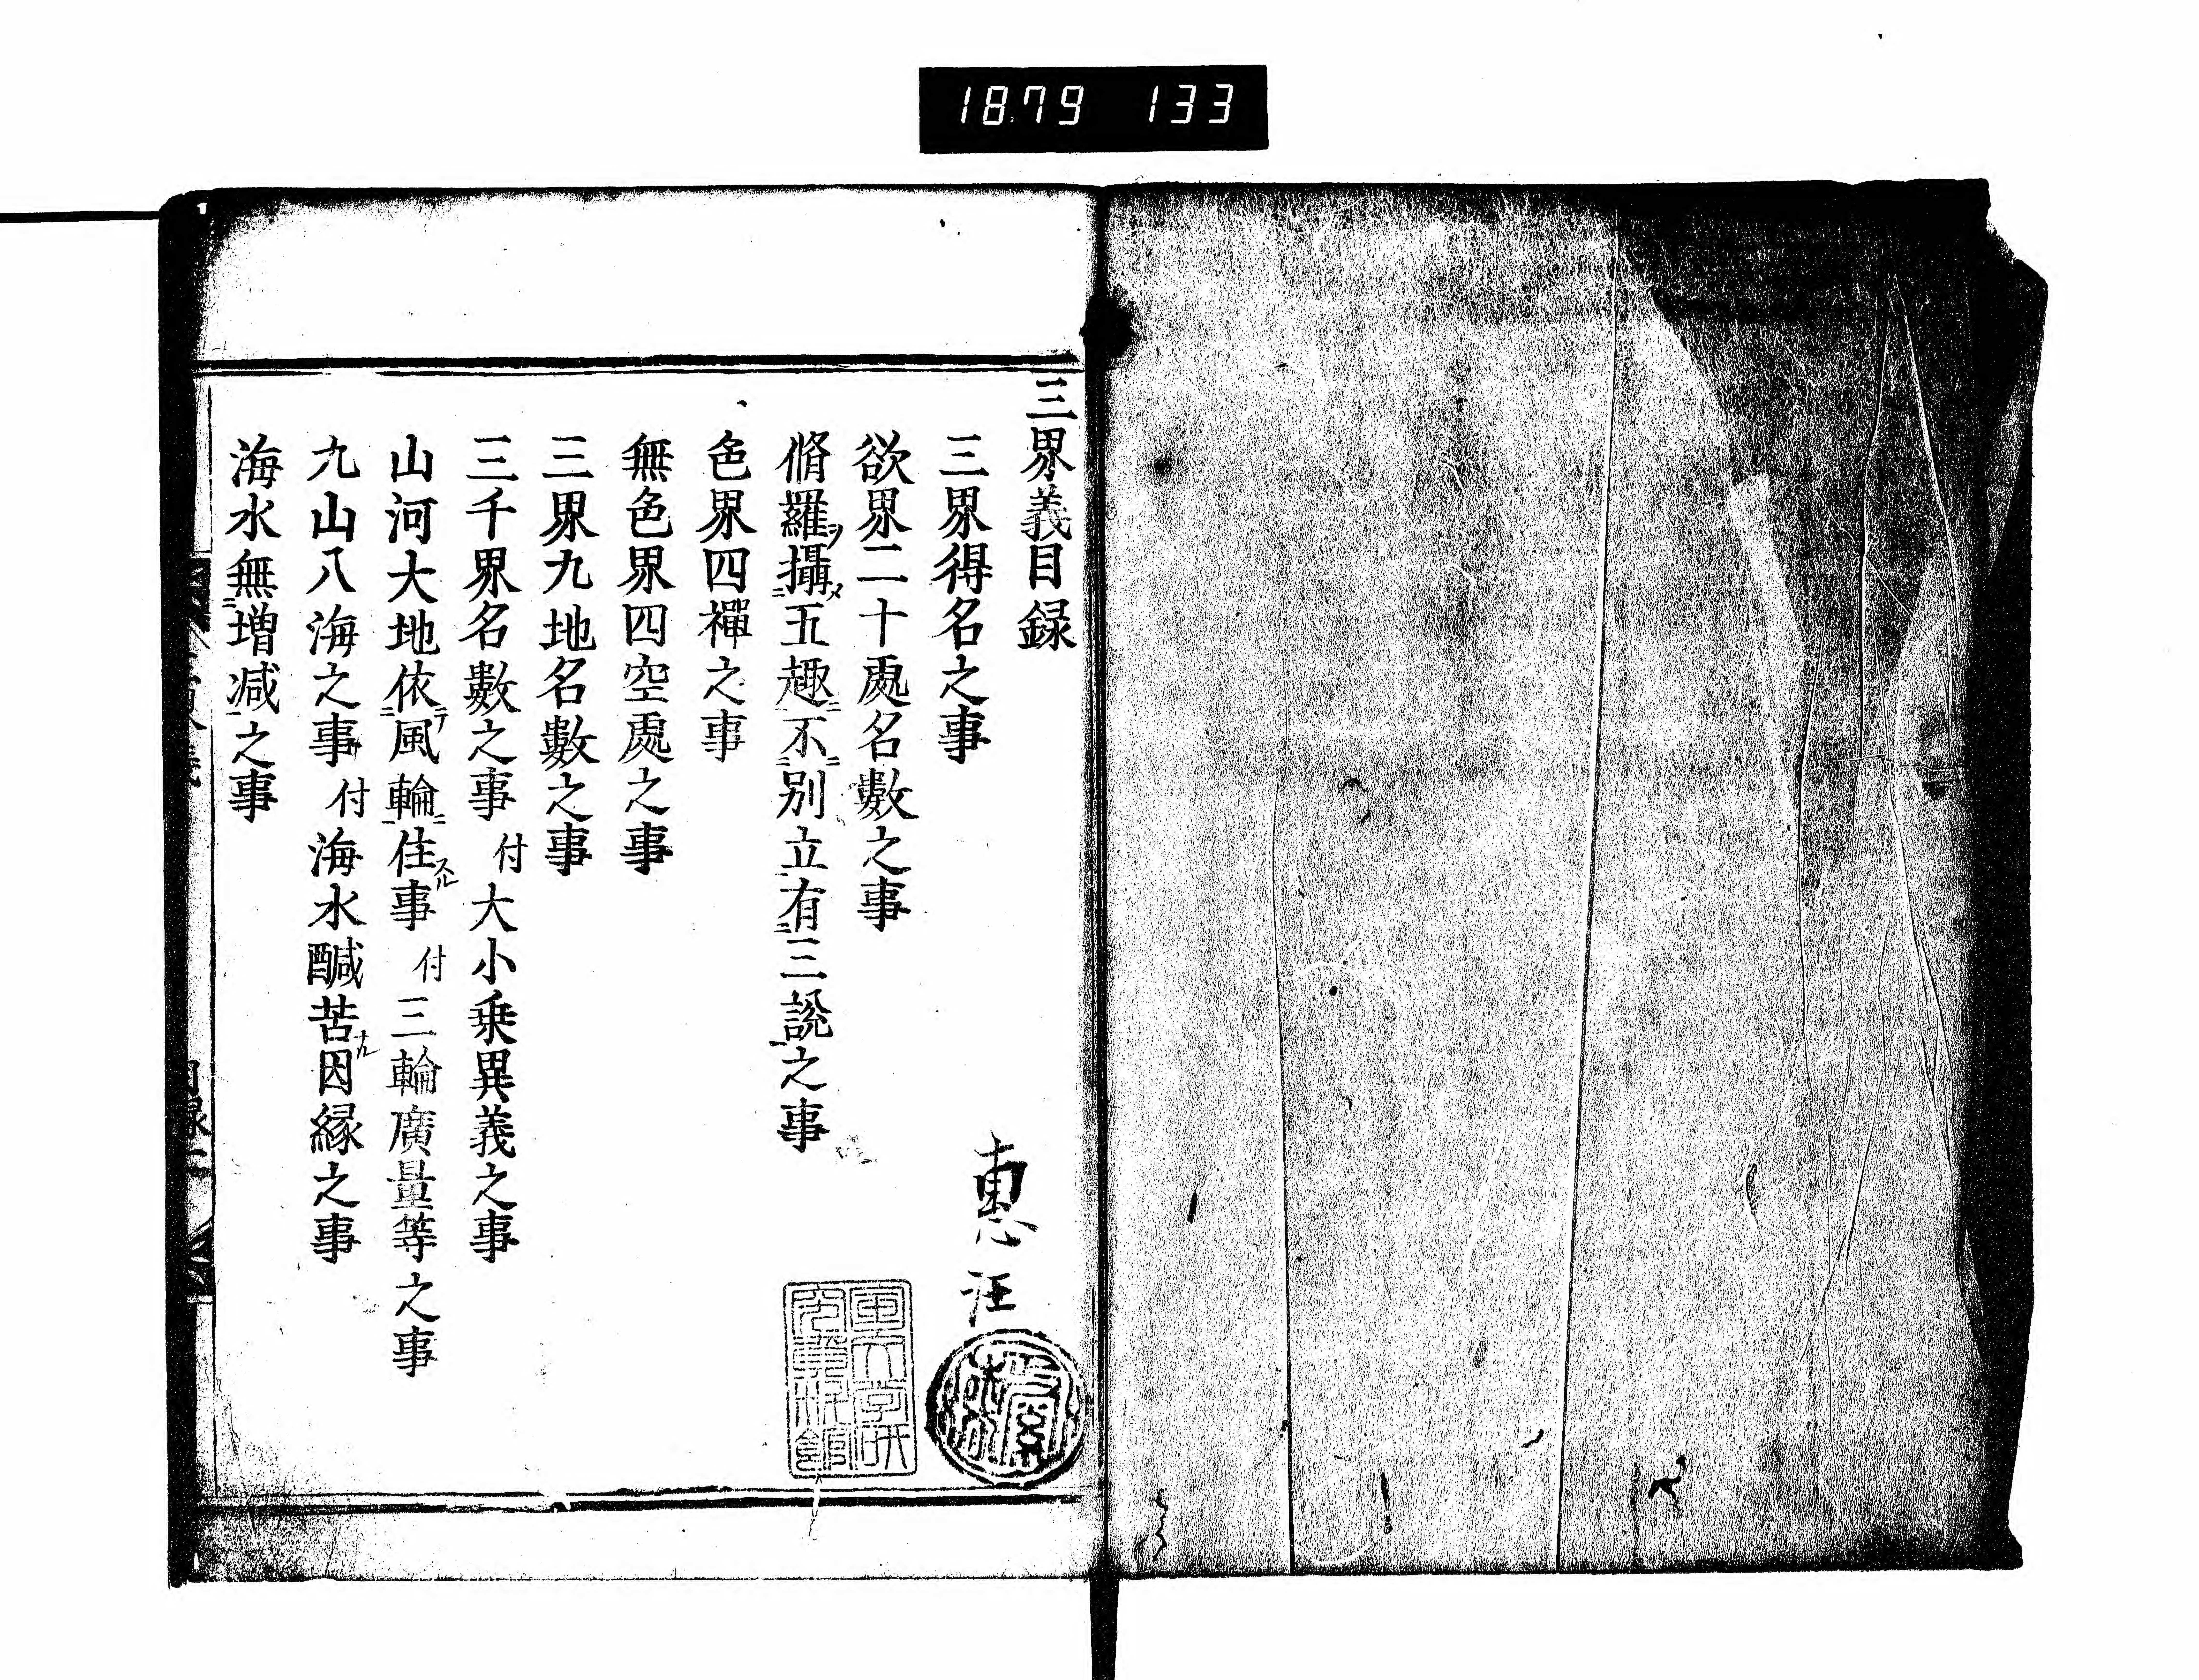 1879 133
三界義目録
三界得名之事
欲界二十處名數之事
脩羅ヲ攝メ五趣ニ不ニ別立有三説之事
色界四禪之事
無色界四空處之事
三界九地名數之事
三千界名數之事 付 大小乗異義之事
山河大地依テ風輪ニ住スル事 付 三輪廣量等之事
九山八海之事 付 海水醎苦ナル因縁之事
海水無増減之事
惠汪